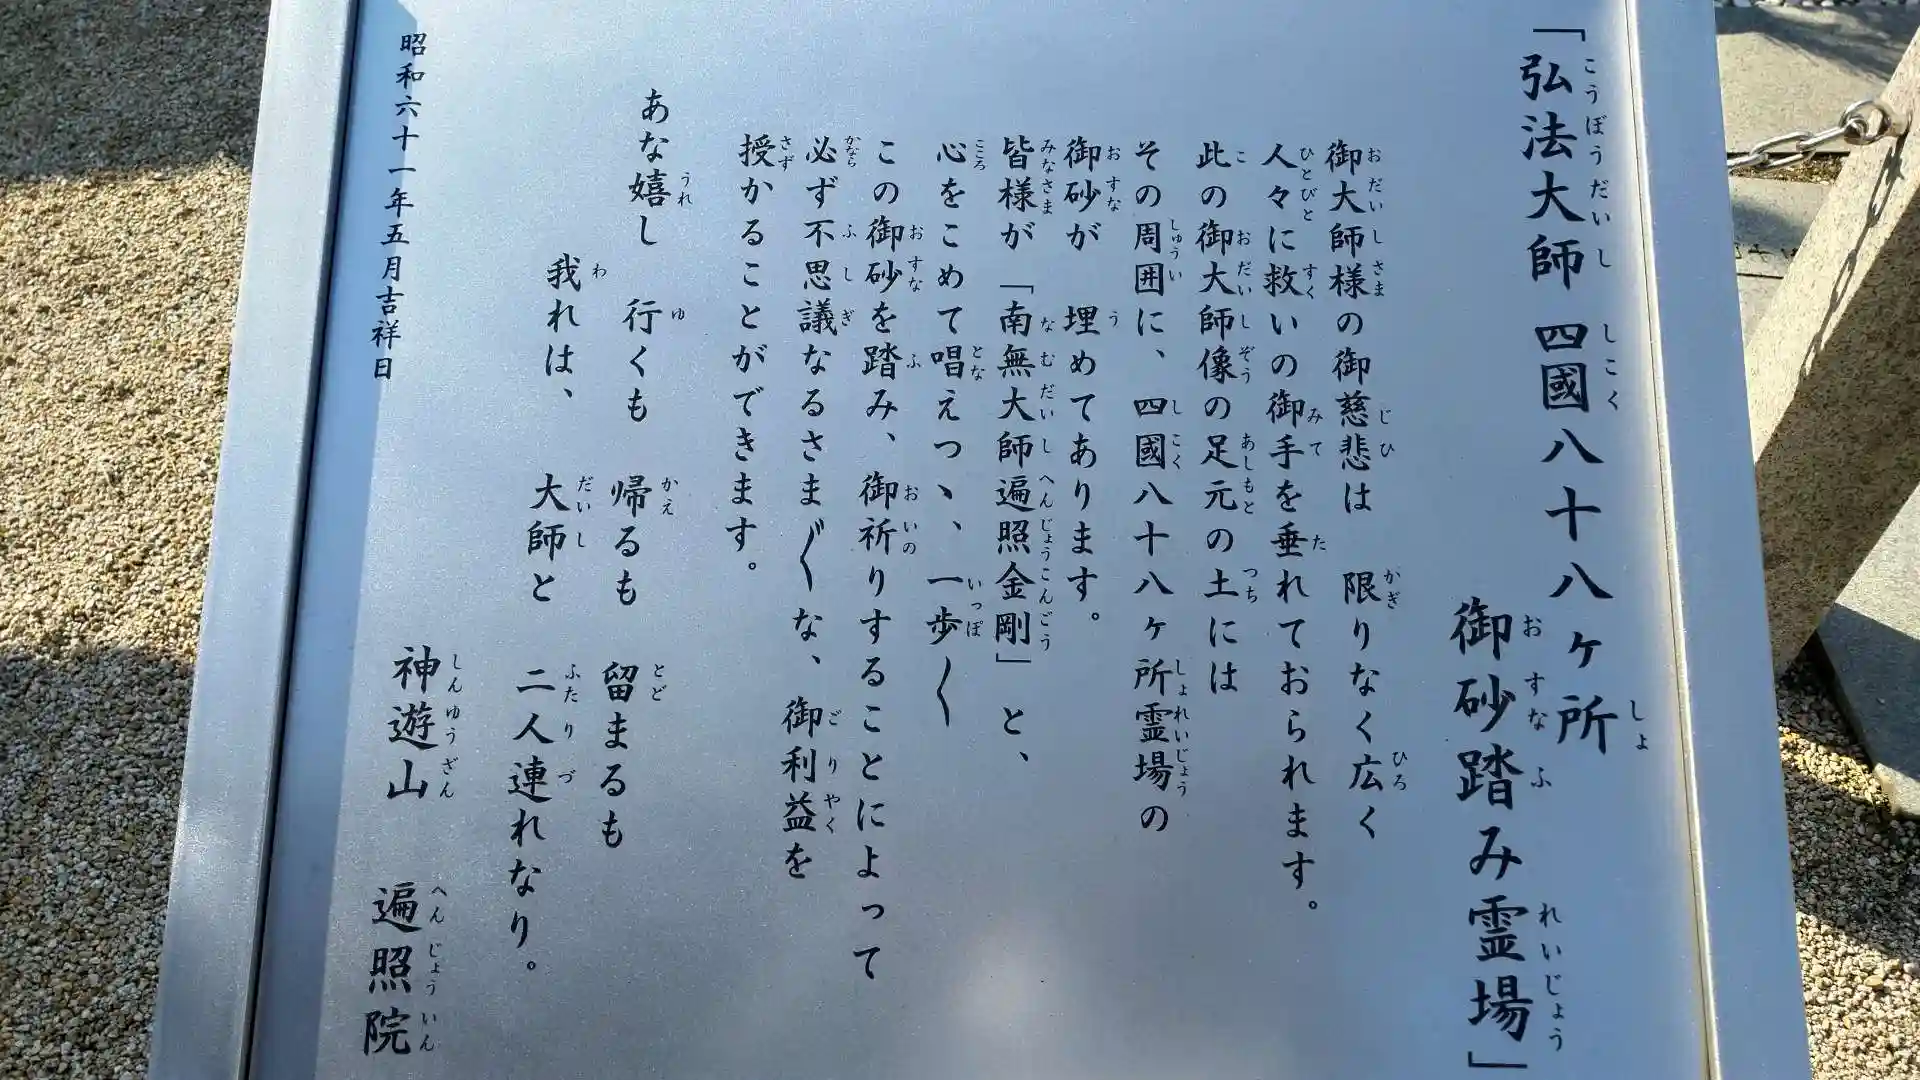 「弘法大師 四國八十八ヶ所
御砂踏み霊場」
御大師様の御慈悲は 限りなく広く
人々に救いの御手を垂れておられます。
此の御大師像の足元の土には
その周囲に、四國八十八ヶ所霊場の
御砂が 埋めてあります。
皆様が「南無大師遍照金剛」と、
心をこめて唱えつヽ、一歩〱
この御砂を踏み、御祈りすることによって
必ず不思議なるさま〲な、御利益を
授かることができます。
あな嬉し 行くも 帰るも 留まるも
我れは、 大師と 二人連れなり。
神遊山 遍照院
昭和六十一年五月吉祥日